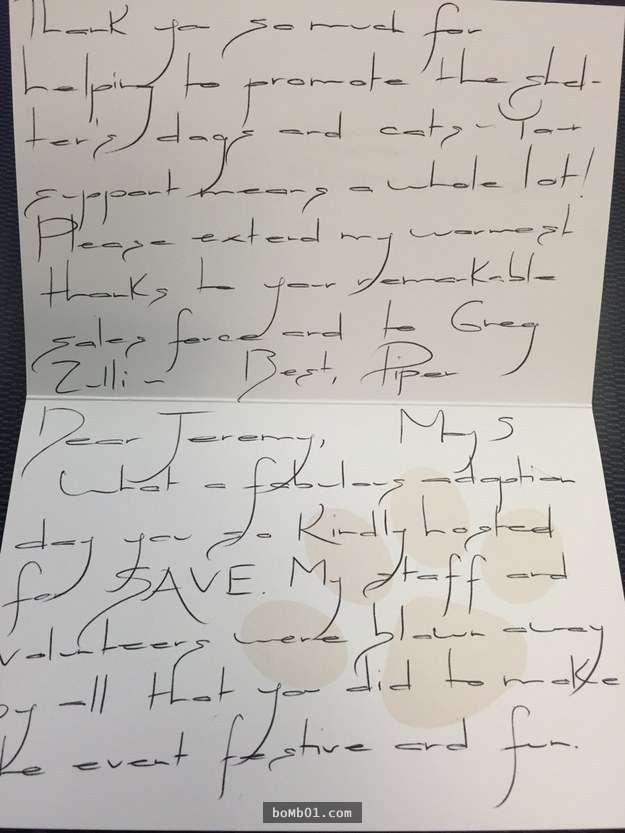 Thank you so much for
helping to promote the shel-
ter's dogs and cats - Your
support means a whole lot!
Please extend my warmest
thanks to your remarkable
sales force and to Greg
Zulli - Best, Piper
Dear Jeremy, May 5
What a fabulous adoption
day you so kindly hosted
for SAVE. My staff and
volunteers were blown away
by all that you did to make
the event festive and fun.
boMb01.com